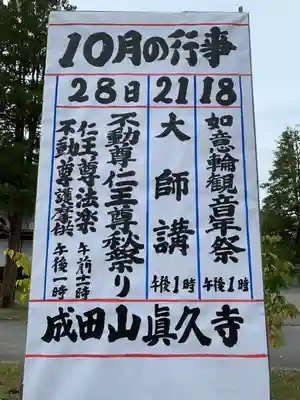 10月の行事
18
如意輪観音卒祭
午後1時
21
大師講
午後1時
28日
不動尊・仁王尊秋祭り
仁王尊法楽 午前十一時
不動尊護摩供 午後一時
成田山眞久寺